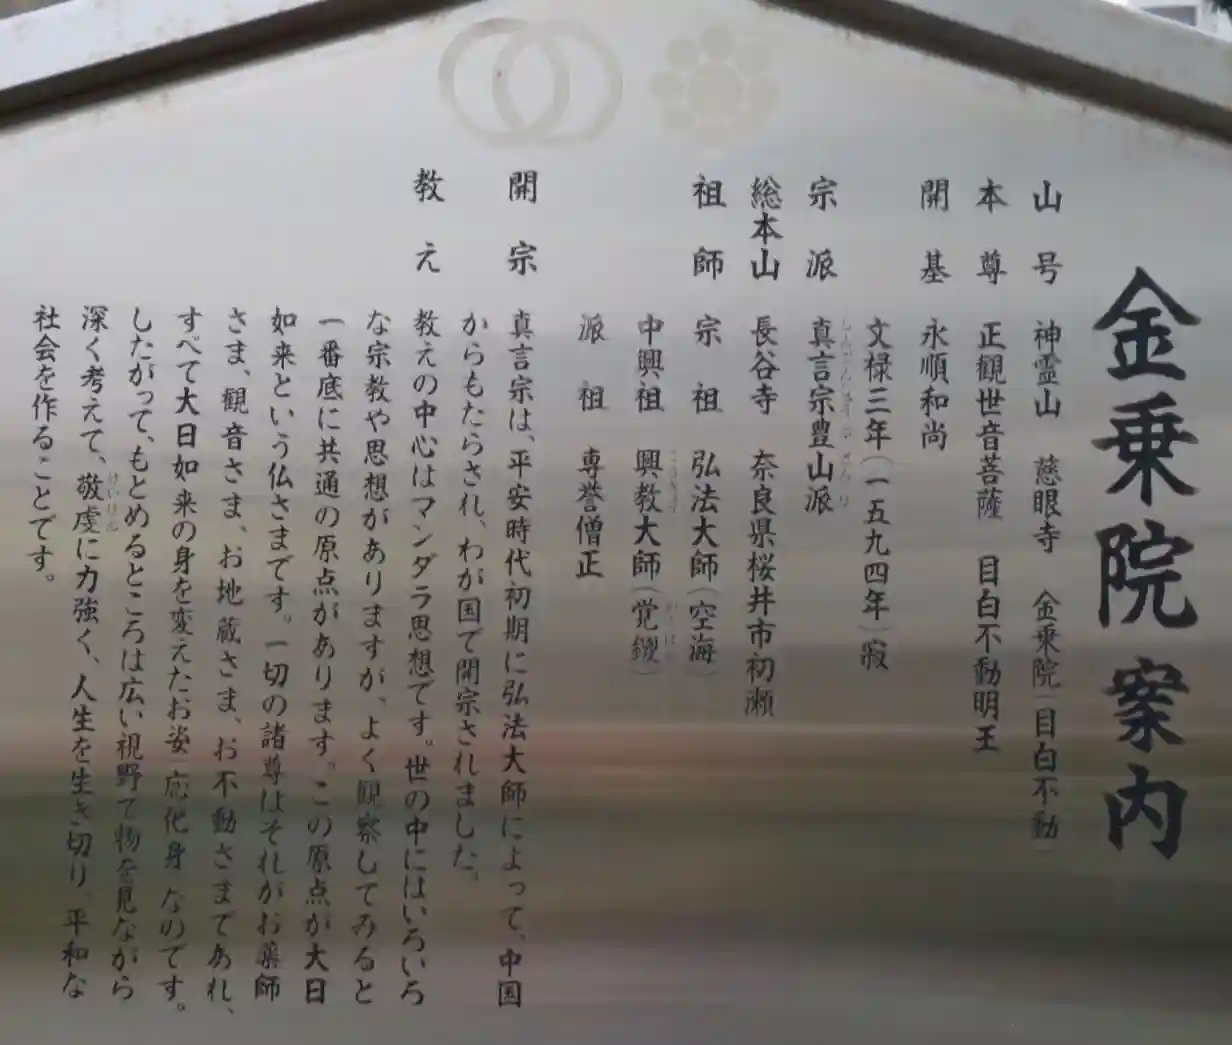 金乗院案内
山号 神霊山 慈眼寺 金乗院(目白不動)
本尊 正観世音菩薩 目白不動明王
開基 永順和尚
文禄三年(一五九四年)寂
宗派 真言宗豊山派
総本山 長谷寺 奈良県桜井市初瀬
祖師 宗祖 弘法大師(空海)
中興祖 興教大師(覚鑁)
派祖 専誉僧正
開宗 真言宗は、平安時代初期に弘法大師によって、中国
からもたらされ、わが国で開宗されました。
教え 教えの中心はマンダラ思想です。世の中にはいろいろ
な宗教や思想がありますが、よく観察してみると
一番底に共通の原点があります。この原点が大日
如来という仏さまです。一切の諸尊はそれがお薬師
さま、観音さま、お地蔵さま、お不動さまであれ、
すべて大日如来の身を変えたお姿(応化身)なのです。
したがって、もとめるところは広い視野で物を見ながら
深く考えて、敬虔に力強く、人生を生き切り、平和な
社会を作ることです。